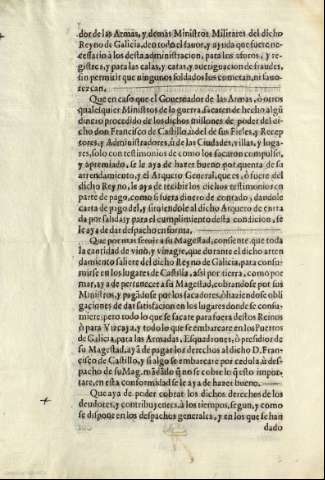 dor de las Armas, y demàs Ministros Militares del dicho
Reyno de Galicia, den todo el fauor, y ayuda que fuere ne-
cessario à los desta administracion, para los aforos, y re-
gistros, y para las calas, y catas, y aueriguacion de fraudes,
sin permitir que ningunos soldados los cometan, ni fauo-
rezcan.
Que en caso que el Gouernador de las Armas, ò otros
qualesquier Ministros de la guerra, sacaren de hecho algũ
dinero procedido de los dichos millones de poder del di-
cho don Francisco de Castillo, ù del de sus Fieles, y Recep
tores, y Administradores, ù de las Ciudades, villas, y luga-
res, solo con testimonios de como los sacaron compulso,
y apremiado, se le aya de hazer bueno por quenta de su
arrendamiento, y el Arquero General, que es, ò fuere del
dicho Reyno, le aya de recibir los dichos testimonios en
parte de pago, como si fuera dinero de contado, dandole
carta de pago del, y siruiendole al dicho Arquero de carta
da por salida, y para el cumplimiento desta condicion, se
le aya de dar despacho en forma.
Que por mas seruir à su Magestad, consiente, que toda
la cantidad de vino, y vinagre, que durante el dicho arren
damiento saliere del dicho Reyno de Galicia, para consu-
mirse en los lugares de Castilla, assi por tierra, como por
mar, aya de pertenecer a su Magestad, cobrandose por sus
Ministros, y pagãdose por los sacadores, ò haziendose obli
gaciones de dar satisfacion en los lugares donde se consu-
miere; pero todo lo que se sacare para fuera destos Reinos
ò para Vizcaya, y todo lo que se embarcare en los Puertos
de Galicia, para las Armadas, Esquadrones, ò presidios de
su Magestad, ayã de pagar los derechos al dicho D. Fran-
cisco de Castillo, y si algo se embarcare por cedula, ù des-
pacho de su Mag. mãdãdo q̃ no se cobre lo q̃ esto impor-
tare, en esta conformidad se le aya de hazer bueno.
Que aya de poder cobrar los dichos derechos de los
deudores, y contribuyentes, à los tiempos, segun, y como
se dispone en los despachos generales, y en los que se han
dado